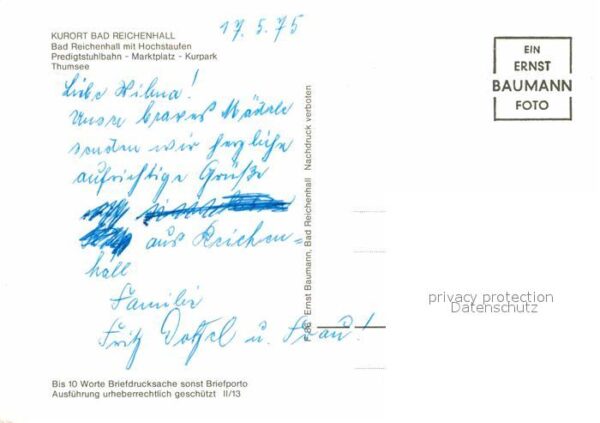 17.5.75
KURORT BAD REICHENHALL
Bad Reichenhall mit Hochstaufen
Predigtstuhlbahn - Marktplatz - Kurpark
Thumsee
EIN
ERNST
BAUMANN
FOTO
Liebe Wilma!
Unsre braves Mädele
senden wir herzliche
aufrichtige Grüße
aus Reichen=
hall
Familie
Fritz u. Frau!
Foto: Ernst Baumann, Bad Reichenhall Nachdruck verboten
privacy protection
Datenschutz
Bis 10 Worte Briefdrucksache sonst Briefporto
Ausführung urheberrechtlich geschützt II/13